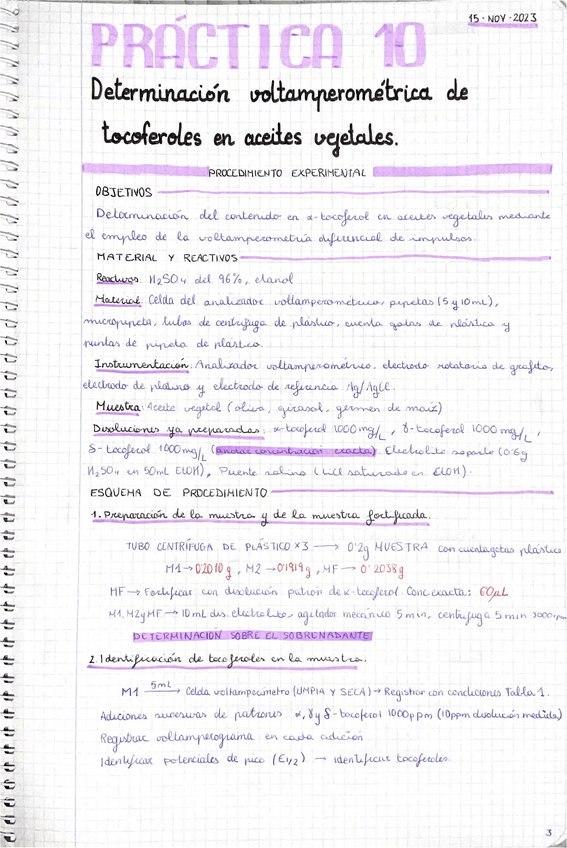 15 · NOV · 2023
PRÁCTICA 10
Determinación voltamperométrica de
tocoferoles en aceites vegetales.
PROCEDIMIENTO EXPERIMENTAL
OBJETIVOS
Determinación del contenido en α-tocoferol en aceites vegetales mediante
el empleo de la voltamperometría diferencial de impulsos.
MATERIAL Y REACTIVOS
Reactivos: H2SO4 del 96%, etanol
Material: Celda del analizador voltamperométrico, pipetas (5 y 10mL),
micropipeta, tubos de centrífuga de plástico, cuenta gotas de plástico y
puntas de pipeta de plástico.
Instrumentación: Analizador voltamperométrico, electrodo rotatorio de grafito,
electrodo de platino y electrodo de referencia Ag/AgCl.
Muestra: Aceite vegetal (oliva, girasol, germen de maíz)
Disoluciones ya preparadas: α-tocoferol 1000 mg/L, γ-tocoferol 1000 mg/L,
δ-tocoferol 1000 mg/L (anotar concentración exacta). Electrolito soporte (0'6g
H2SO4 en 50mL EtOH), Puente salino (LiCl saturado en EtOH).
ESQUEMA DE PROCEDIMIENTO
1. Preparación de la muestra y de la muestra fortificada.
TUBO CENTRÍFUGA DE PLÁSTICO ×3 → 0'2g MUESTRA con cuentagotas plástico
M1 → 0'2010 g, M2 → 0'1919 g, MF → 0'2038 g
MF → Fortificar con disolución patrón de α-tocoferol. Conc exacta: 60μL
M1, M2 y MF → 10 mL dis. electrolito, agitador mecánico 5 min, centrífuga 5 min 3000rpm
DETERMINACIÓN SOBRE EL SOBRENADANTE
2. Identificación de tocoferoles en la muestra.
M1 5mL → Celda voltamperímetro (LIMPIA Y SECA) → Registrar con condiciones Tabla 1.
Adiciones sucesivas de patrones α, γ y δ-tocoferol 1000ppm (10ppm disolución medida)
Registrar voltamperograma en cada adición
Identificar potenciales de pico (E1/2) → identificar tocoferoles.
3